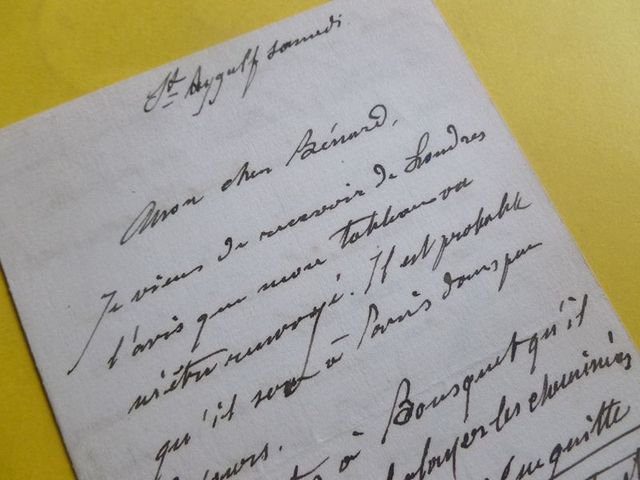 St Aygulf samedi.
Mon cher Bénard,
Je viens de recevoir de Londres
l'avis que mon tableau va
m'être renvoyé. Il est probable
qu'il sera à Paris dans peu
jours.
à Bousquet qu'il
les cheminées
quitte